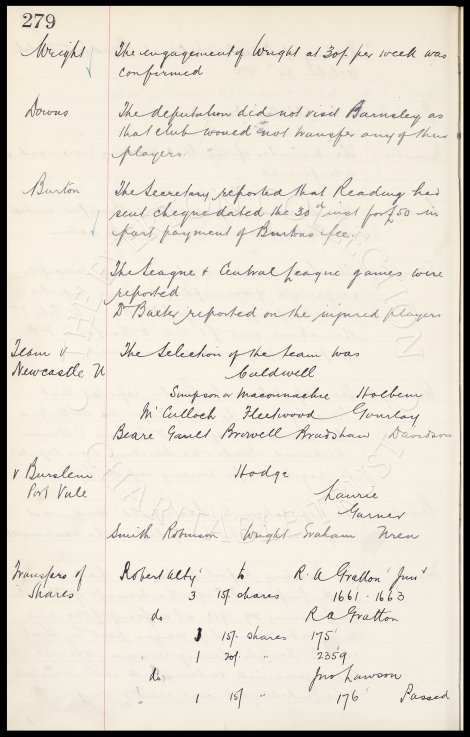 279
Wright The engagement of Wright at 30/- per week was
confirmed
Downs The deputation did not visit Barnsley as
that club would not transfer any of their
players.
Burton The Secretary reported that Reading had
sent cheque dated the 30th inst for £50 in
part payment of Burtons fee
The League & Central League games were
reported
Dr Baxter reported on the injured players
Team v The Selection of the team was
Newcastle U Caldwell
Simpson or Maconnachie Holbem
McCulloch Fleetwood Gourlay
Beare Gault Browell Bradshaw Davidson
v Burslem Hodge
Port Vale Laurie
Garner
Smith Robinson Wright Graham Wren
Transfers of Robert to R. A Gratton Junr
Shares 3 15/- shares 1661-1663
do R A Gratton
1 15/- shares 175
1 20/- " 2359
do Jno Lawson
1 15/- " 176 Passed